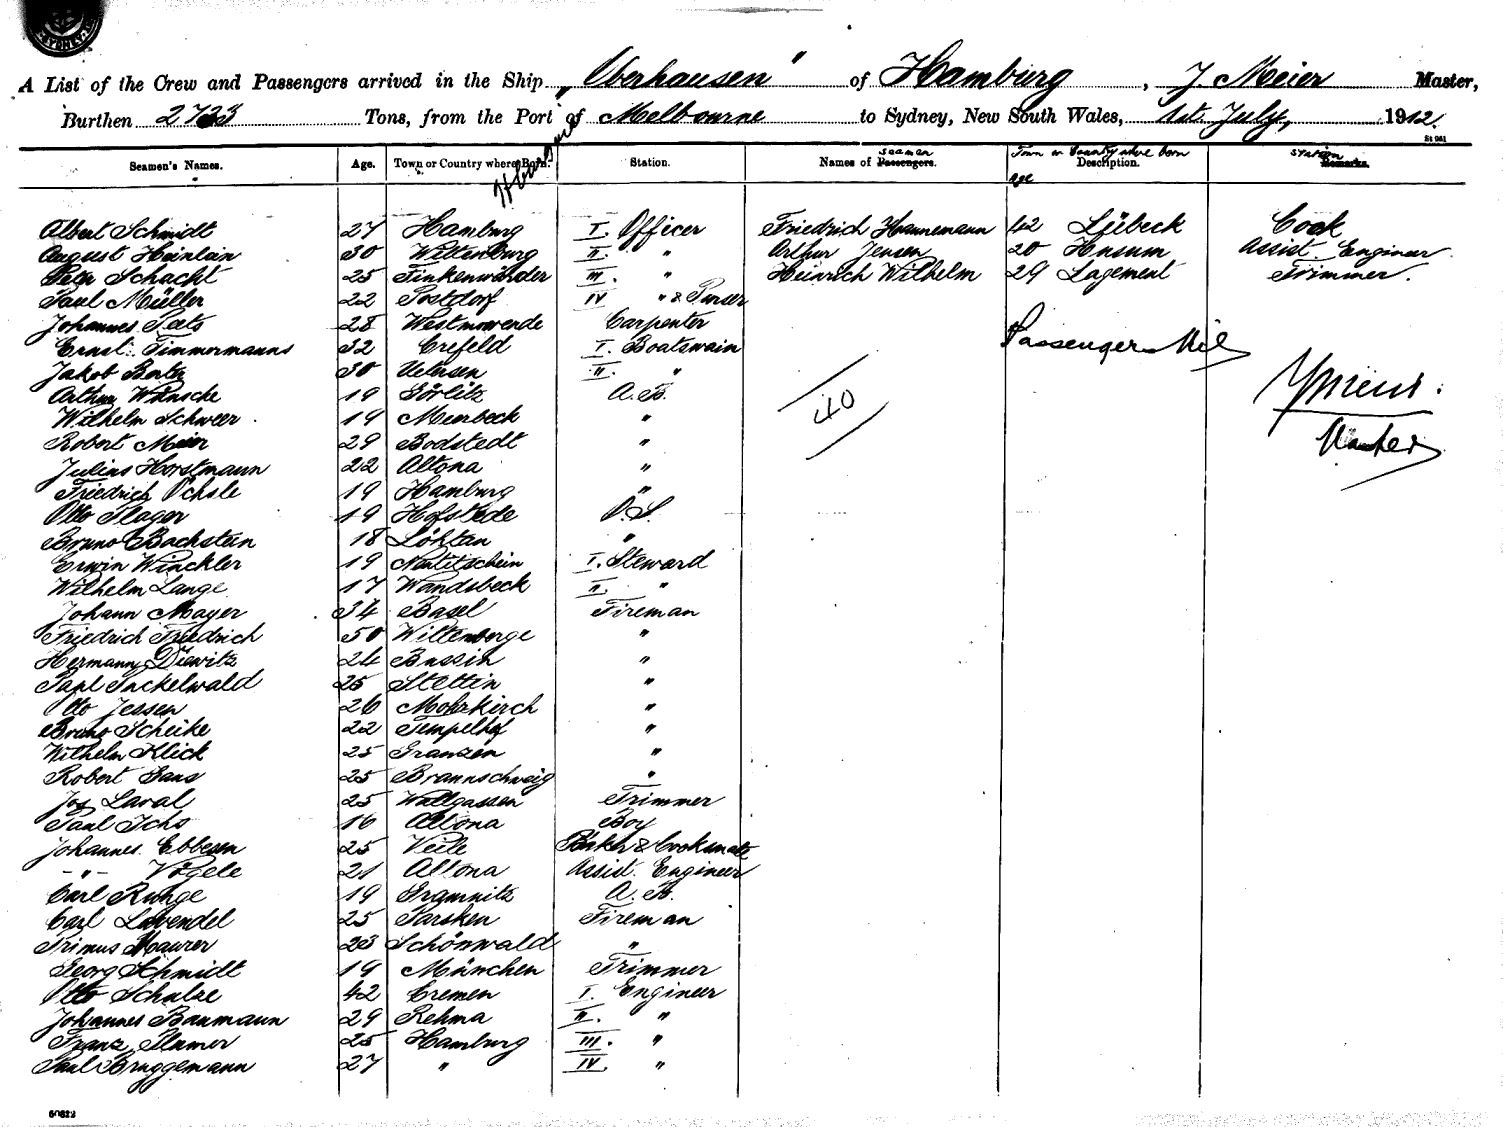 SYDNEY
A List of the Crew and Passengers arrived in the Ship „Oberhausen" of Hamburg, J. Meier Master,
Burthen 2733 Tons, from the Port of Melbourne to Sydney, New South Wales, 1st July, 1912.
St 961
Seamen's Names. Age. Town or Country where Born. Station. Names of Passengers. seamen Town or Country where born Description. Age Station Remarks.
Albert Schmidt 27 Hamburg I. Officer Friedrich Hannemann 42 Lübeck Cook
August Heinlein 30 Wittenburg II. " Arthur Jensen 20 Husum Assist. Engineer
Peter Schacht 25 Finkenwärder III. " Heinrich Wilhelm 29 Lagement Trimmer.
Paul Müller 22 Postdorf IV " & Purser
Johannes Peets 28 Carpenter
Ernst Timmermanns 32 Crefeld I. Boatswain
Passengers Nil
Jakob 30 Uetersen II. "
Arthur Wünsche 19 Görlitz A.B.
40
Wilhelm Schweer 19 Meerbeck "
Robert Meier 29 Bodstedt "
Julius Horstmann 22 Altona "
Friedrich Öchsle 19 Hamburg "
Otto Plager 19 Hofstede O.S.
Bruno Bachstein 18 "
Erwin Winckler 19 I. Steward
Wilhelm Lange 17 Wandsbeck II. "
Johann Mayer 34 Basel Fireman
Friedrich Friedrich 50 Wittenberge "
Hermann Diewitz 24 Bussin "
Paul Packelwald 25 Stettin "
Otto Jessen 26 Mohrkirch "
Bruno Scheike 22 Tempelhof "
Wilhelm Klick 25 Granzen "
Robert Gans 25 Braunschweig "
Jos Laval 25 Wallgassen Trimmer
Paul Ichs 16 Altona Boy
Johannes Ebbesen 25 Veile Baker & Cooksmate
-"- Vögele 21 Altona Assist. Engineer
Carl Runge 19 Gramnitz A.B.
Carl Lavendel 25 Parsken Fireman
Primus Maurer 23 Schönwald "
Georg Schmidt 19 München Trimmer
Otto Schulze 42 Bremen I. Engineer
Johannes Baumann 29 Rehma II. "
Franz 25 Hamburg III. "
Paul Bruggemann 27 " IV. "
60829